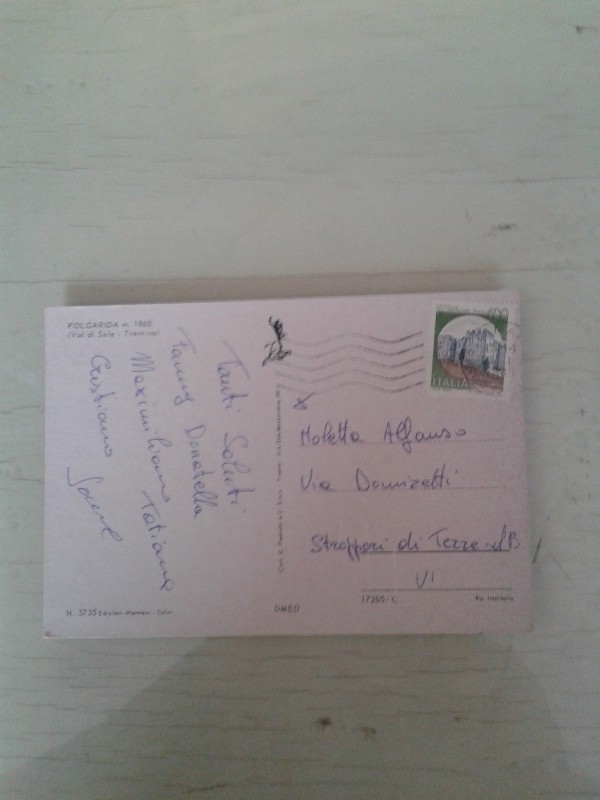 FOLGARIDA m. 1860
(Val di Sole - Trentino)
Tanti Saluti
Fanny Donatella
Maximiliano Tatiana
Cristiano
400
ITALIA
Moletta Alfonso
Via Donizetti
Stroppari di Tezze s/B
VI
N. 5735 Edizioni
Color
DMED
17205/C
Rip. Interdetta